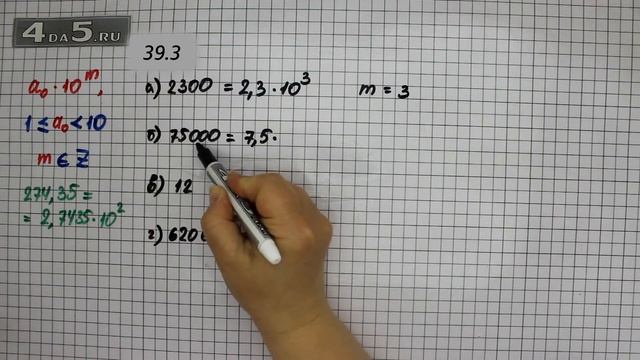 4DA5.RU
39.3
a₀ · 10ᵐ,
1 ≤ a₀ < 10
m ∈ Z
274,35 =
= 2,7435 · 10²
а) 2300 = 2,3 · 10³ m = 3
б) 75000 = 7,5 ·
в) 12
г) 620